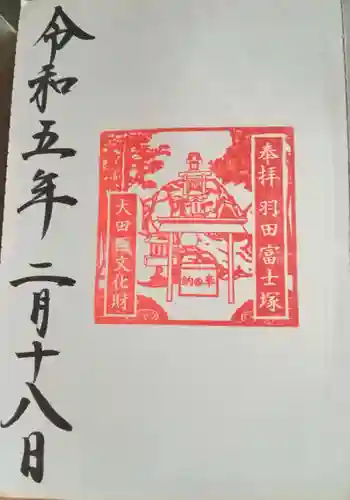 奉拝 羽田富士塚
大田区文化財
奉納
令和五年二月十八日